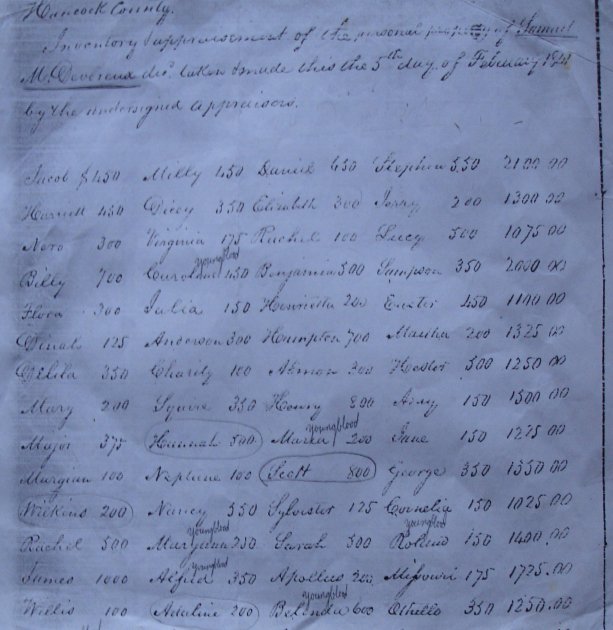 Hancock County.
Inventory & appraisement of the personal property of Samuel
M. Devereux dec. taken & made this the 5th day of February
by the undersigned appraisors.
Jacob $450 Milly 450 Daniel 650 Stephen 550 2100.00
Harriett 450 Dicey 350 Elizabeth 300 Jerry 200 1300.00
Nero 300 Virginia 175 Rachel 100 Lucy 500 1075.00
youngblood
Billy 700 Caroline 450 Benjamin 500 Sampson 350 2000.00
Flora 300 Julia 150 Henrietta 200 Exeter 450 1100.00
Dinah 125 Anderson 300 Hampton 700 Martha 200 1325.00
Delila 350 Charity 100 Almon 300 Hester 500 1250.00
Mary 200 Squire 350 Henry 800 Amy 150 1500.00
youngblood
Major 375 Hannah 500 Maria 200 Jane 150 1225.00
100 Neptune 100 Scott 800 George 350 1350.00
Wilkins 200 Nancy 550 Sylvester 125 Cornelia 150 1025.00
youngblood youngblood
Rachel 500 250 Sarah 500 Roland 150 1400.00
youngblood
James 1000 Alfred 350 Apollus 200 Missouri 175 1725.00
youngblood
Willis 100 Adaline 200 Belinda 600 Othello 350 1250.00